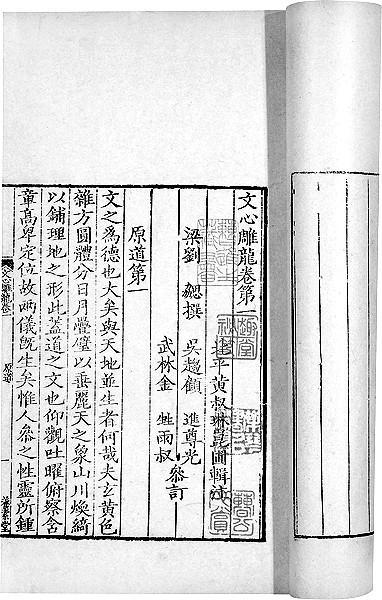 文心雕龍卷第一
平黃叔琳崑圃輯注
梁劉 勰撰 吳趨顧 進尊光
武林金 甡雨叔
參訂
原道第一
文之為德也大矣與天地並生者何哉夫玄黃色
雜方圓體分日月疊璧以垂麗天之象山川煥綺
以鋪理地之形此蓋道之文也仰觀吐曜俯察含
章高卑定位故兩儀既生矣惟人參之性靈所鍾
文心雕龍卷一 原道 一